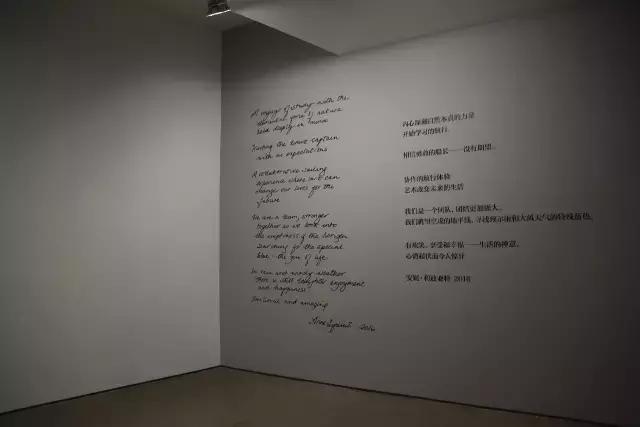 A voyage of study with the
elemental force of nature
held deeply in mind
Trusting the brave captain
with no expectations
A collaborative sailing
experience where art can
change our lives for the
future
We are a team, stronger
together as we look into
the emptiness of the horizon
searching for the special
blue - the of life
In rain and windy weather
there is still delight enjoyment
and happiness
and amazing
2016
内心深刻自然本真的力量
开始学习的航行.
相信勇敢的船长——没有期望..
协作的航行体验
艺术改变未来的生活
我们是一个团队, 团结更加强大..
我们眺望空茫的地平线, 寻找
有欢笑、享受和幸福——生活的禅意,
心潮起伏而令人惊异
安妮·利迪亚特 2016